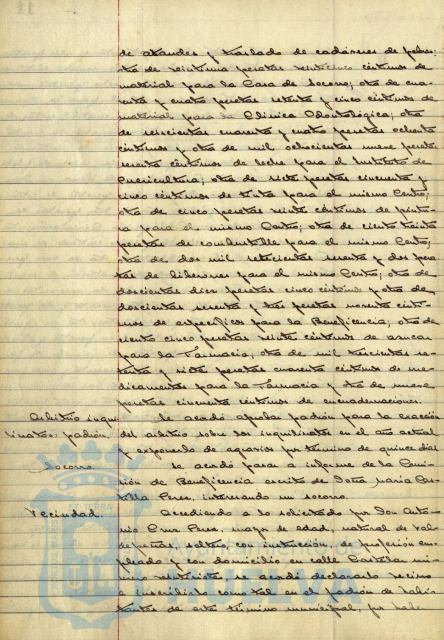 de ataudes y traslado de cadáveres de pobres:
otra de veintiuna pesetas veinticinco céntimos de
material para la Casa de Socorro; otra de cua-
renta y cuatro pesetas setenta y cinco céntimos de
material para la Clínica Odontológica; otra
de seiscientas cuarenta y cuatro pesetas ochenta
céntimos y otra de mil ochocientas nueve pesetas
sesenta céntimos de leche para el Instituto de
Puericultura; otra de siete pesetas cincuenta y
cinco céntimos de tinta para el mismo Centro;
otra de cinco pesetas veinte céntimos de pintu-
ra para el mismo Centro; otra de ciento treinta
pesetas de combustible para el mismo Centro;
otra de dos mil setecientas sesenta y dos pese-
tas de biberones para el mismo Centro; otra de
doscientas diez pesetas cinco céntimos y otra de
doscientas sesenta y tres pesetas noventa cénti-
mos de específicos para la Beneficencia; otra de
ciento cinco pesetas veinte céntimos de azúcar
para la Farmacia; otra de mil trescientas se-
tenta y siete pesetas cuarenta céntimos de me-
dicamentos para la Farmacia y otra de nueve
pesetas cincuenta céntimos de encuadernaciones.
Arbitrio inqui-
linatos: padrón.
Se acordó aprobar padrón para la exacción
del arbitrio sobre los inquilinatos en el año actual
y exponerlo de agravios por término de quince días
Socorro.
Se acordó pasar a informe de la Comi-
sión de Beneficencia escrito de Doña María Cas-
tilla Perez, interesando un socorro.
Vecindad.
Accediendo a lo solicitado por Don Anto-
nio Cruz Perez, mayor de edad, natural de Val-
depeñas, soltero, con instrucción, de profesión em-
pleado y con domicilio en calle Castelar nú-
mero veintisiete, se acordó declararlo vecino
e inscribirlo como tal en el padrón de habi-
tantes de este término municipal, por
Ayuntamiento de